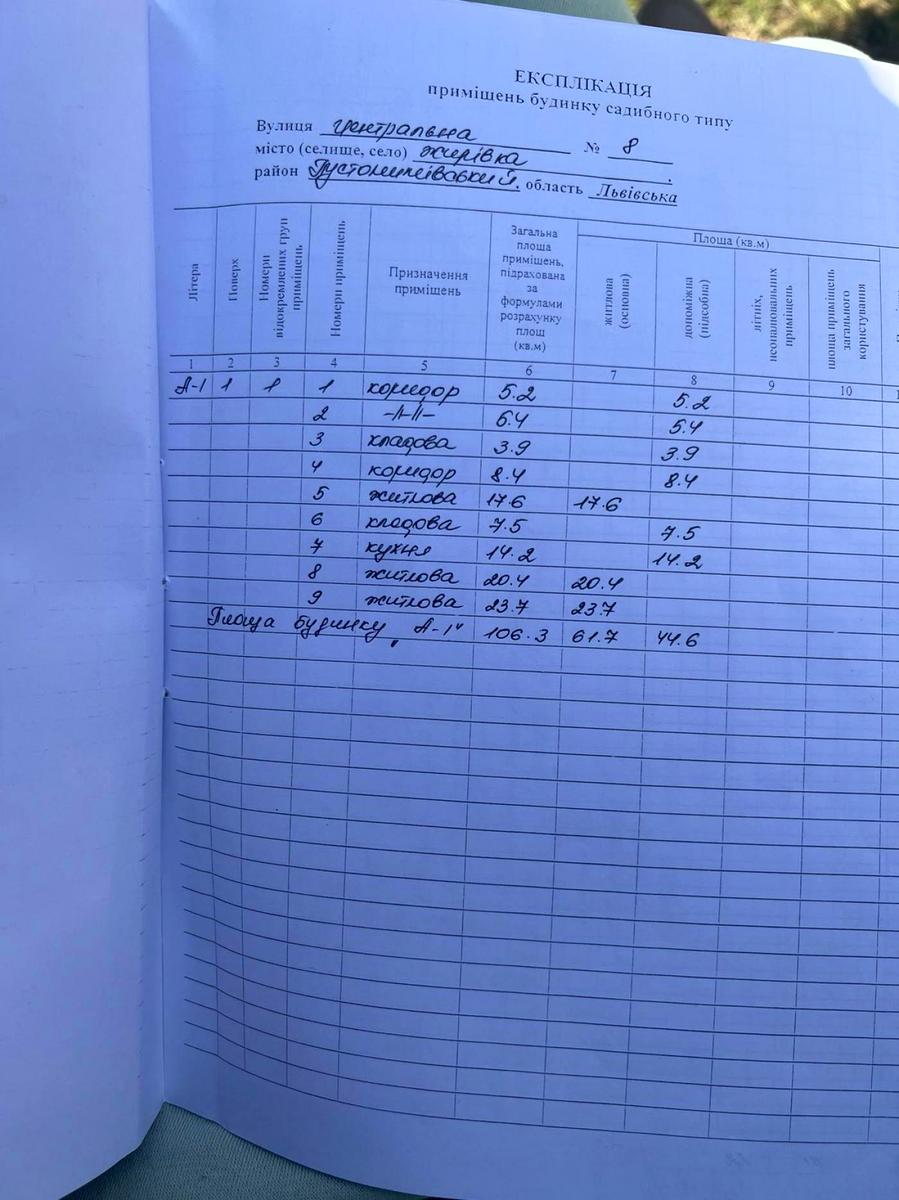 ЕКСПЛІКАЦІЯ
приміщень будинку садибного типу
Вулиця Центральна № 8
місто (селище, село) Жирівка.
район Пустомитівський, область Львівська
Літера Поверх Номери відокремлених груп приміщень Номери приміщень Призначення приміщень Загальна площа приміщень, підрахована за формулами розрахунку площ (кв.м) Площа (кв.м) житлова (основна) допоміжна (підсобна) літніх, неопалювальних приміщень площа приміщень загального користування
1 2 3 4 5 6 7 8 9 10
А-1 1 1 1 коридор 5.2 5.2
2 -//-//- 5.4 5.4
3 кладова 3.9 3.9
4 коридор 8.4 8.4
5 житлова 17.6 17.6
6 кладова 7.5 7.5
7 кухня 14.2 14.2
8 житлова 20.4 20.4
9 житлова 23.7 23.7
Площа будинку „А-1" 106.3 61.7 44.6